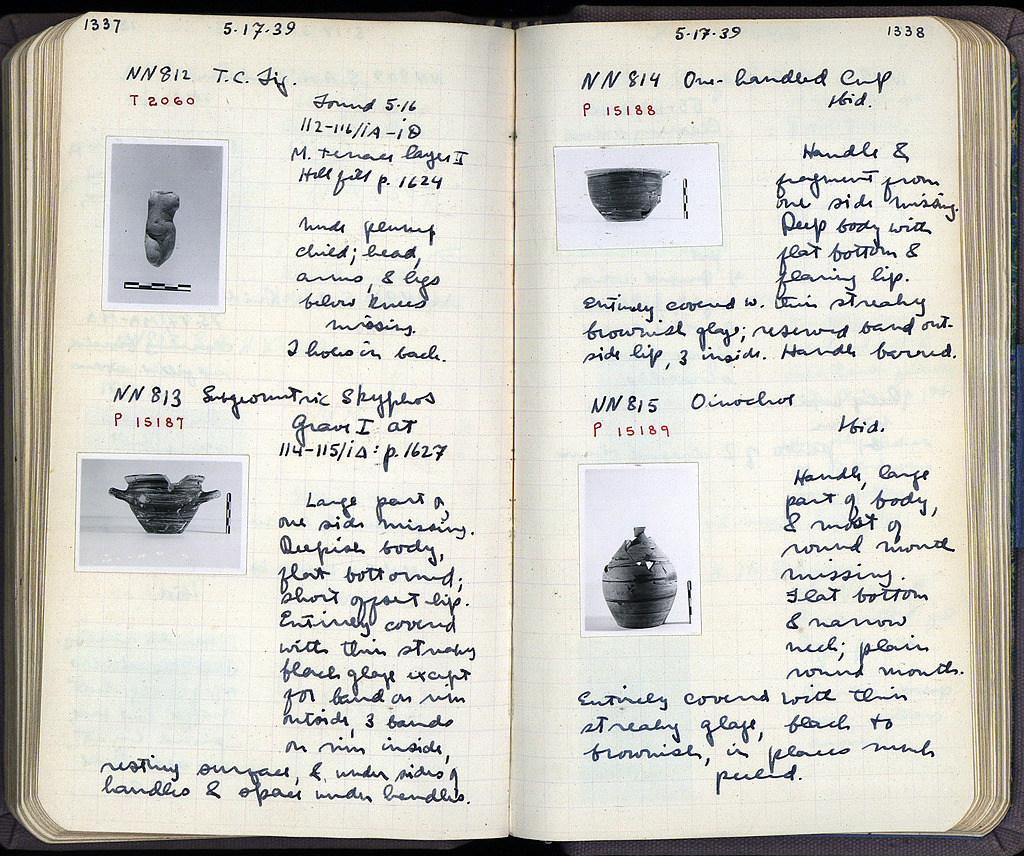 1337
5·17·39
NN812 T.C. Fig.
T 2060
Found 5·16
112-116/ΙΑ-ΙΘ
M. terrace layer I
Hill fill p. 1624
Nude plump
child; head,
arms, & legs
below knees
missing.
2 holes in back.
NN813 Subgeometric Skyphos
P 15187
Grave I at
114-115/ΙΔ: p. 1627
Large part of
one side missing.
Deepish body,
flat bottomed;
short offset lip.
Entirely covered
with thin streaky
black glaze except
for band on rim
outside, 3 bands
on rim inside,
resting surface, & under sides of
handles & space under handles.
5·17·39
1338
NN814 One-handled Cup
P 15188
Ibid.
Handle &
fragment from
one side missing.
Deep body with
flat bottom &
flaring lip.
Entirely covered w. thin streaky
brownish glaze; reserved band out-
side lip, 3 inside. Handle barred.
NN815 Oinochoe
P 15189
Ibid.
Handle, large
part of body,
& most of
round mouth
missing.
Flat bottom
& narrow
neck; plain
round mouth.
Entirely covered with thin
streaky glaze, black to
brownish, in places much
peeled.